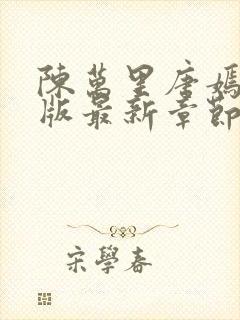 陳萬里唐嫣
版最新章節
宋學春